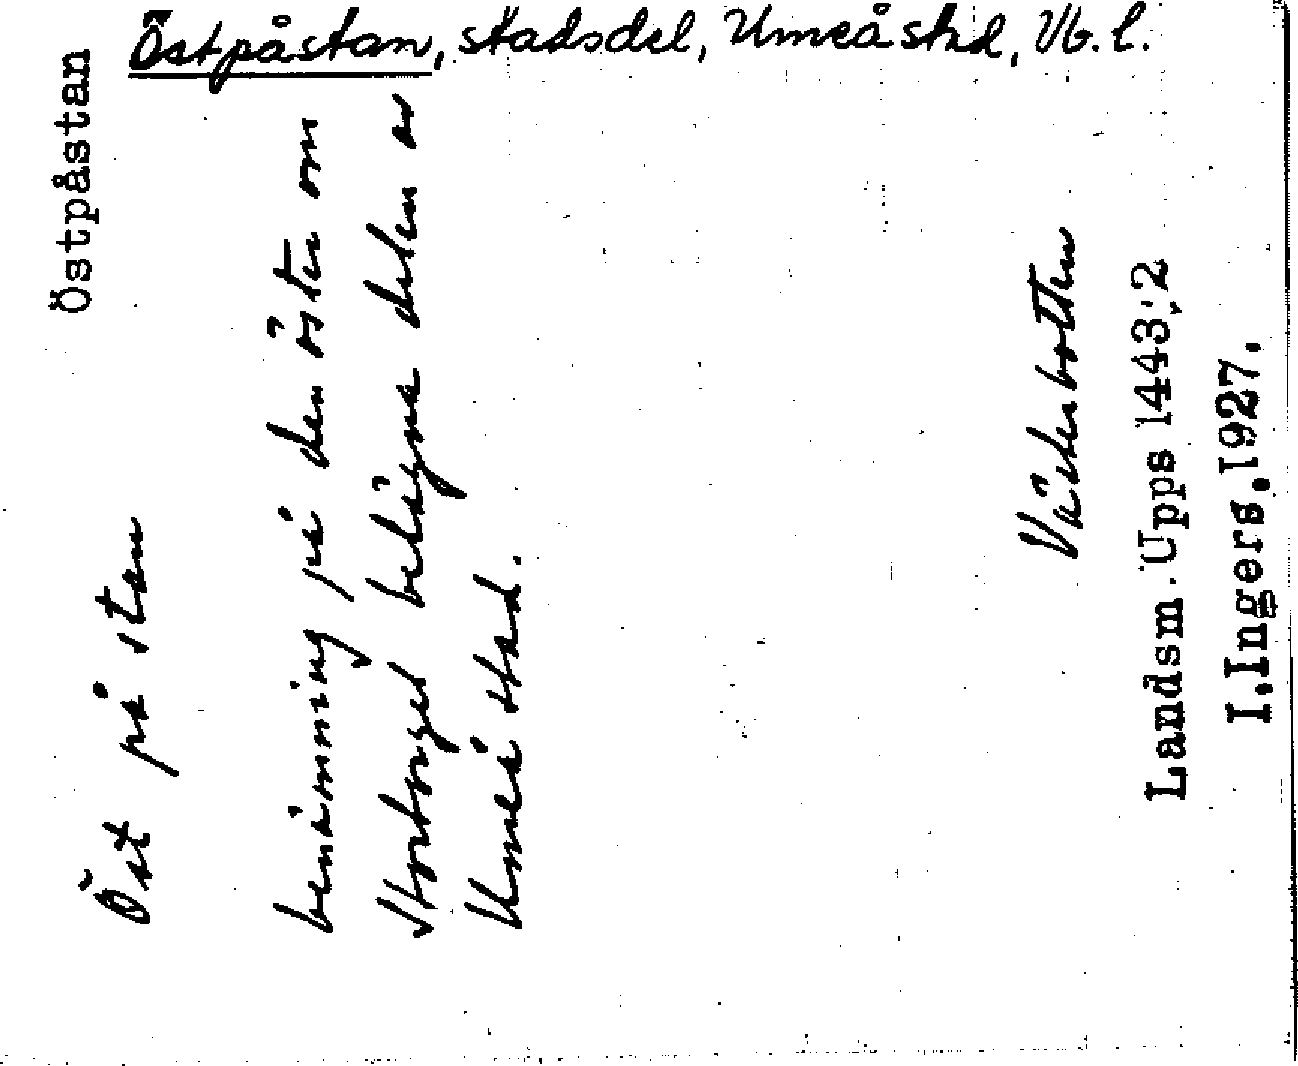 Östpåstan, stadsdel, Umeå stad, Vb. l.
Östpåstan
Öst på stan
benämning på den öster om
Stortorget belägna delen av
Umeå stad.
Västerbotten
Landsm. Upps 1443;2
I.Ingers.1927.